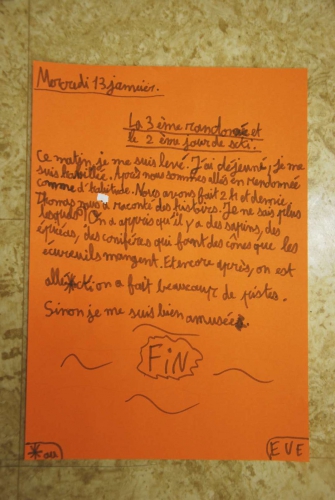 Mercredi 13 janvier.
La 3 ème randonnée et
le 2 ème jour de ski.
Ce matin, je me suis levé. J'ai déjeuné, je me
suis habillée. Après nous sommes allés en randonnée
comme d'habitude. Nous avons fait 2 h et demie.
Thomas nous a raconté des histoires. Je ne sais plus
lesquels! On a appris qu'il y a des sapins, des
épicéas, des conifères qui font des cônes que les
écureuils mangent. Et encore après, on est
allé*ski on a fait beaucoup de pistes.
Sinon je me suis bien amusée.
FiN
*au
EVE